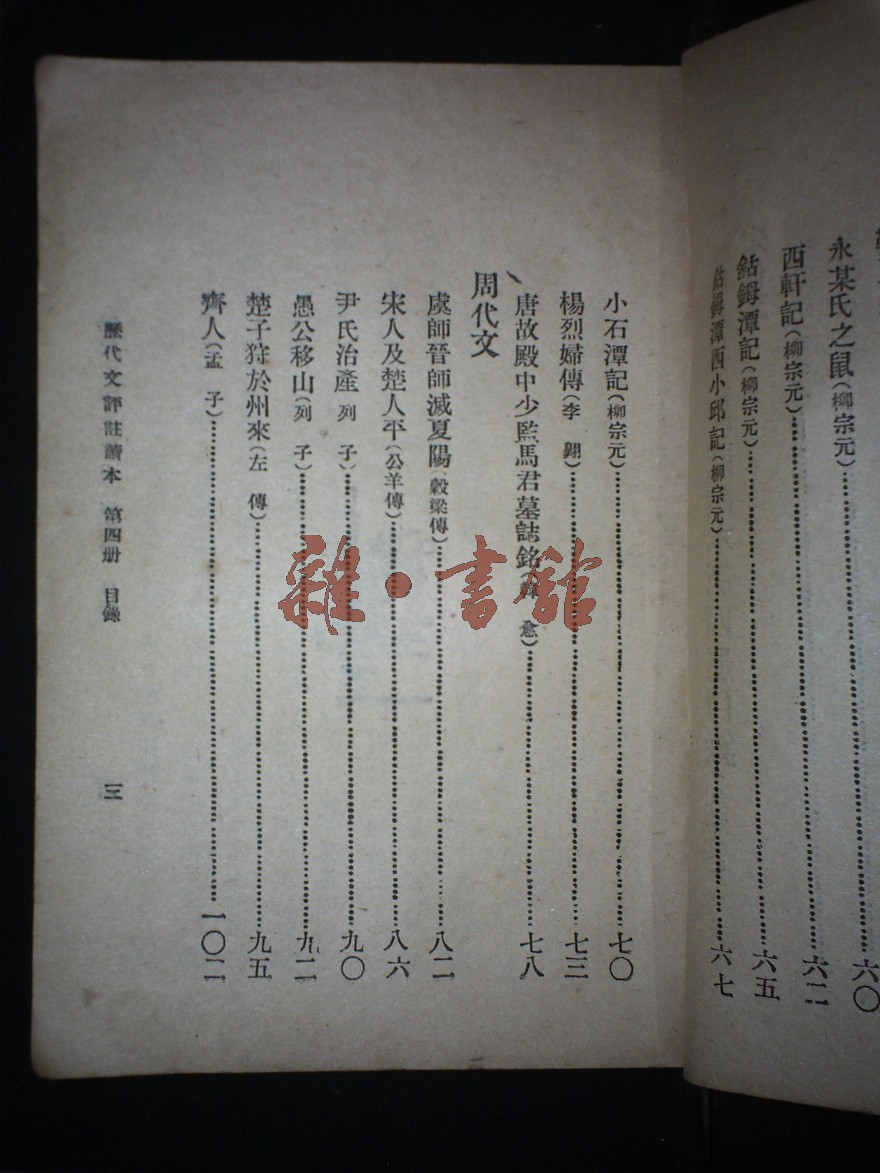 永某氏之鼠(柳宗元)……六〇
西軒記(柳宗元)……六二
鈷鉧潭記(柳宗元)……六五
鈷鉧潭西小邱記(柳宗元)……六七
小石潭記(柳宗元)……七〇
楊烈婦傳(李 翺)……七三
唐故殿中少監馬君墓誌銘(韓 愈)……七八
周代文
虞師晉師滅夏陽(穀梁傳)……八二
宋人及楚人平(公羊傳)……八六
尹氏治產 列 子)……九〇
愚公移山(列 子)……九二
楚子狩於州來(左 傳)……九五
齊人(孟 子)……一〇二
歷代文評註讀本 第四册 目錄 三
雜·書館